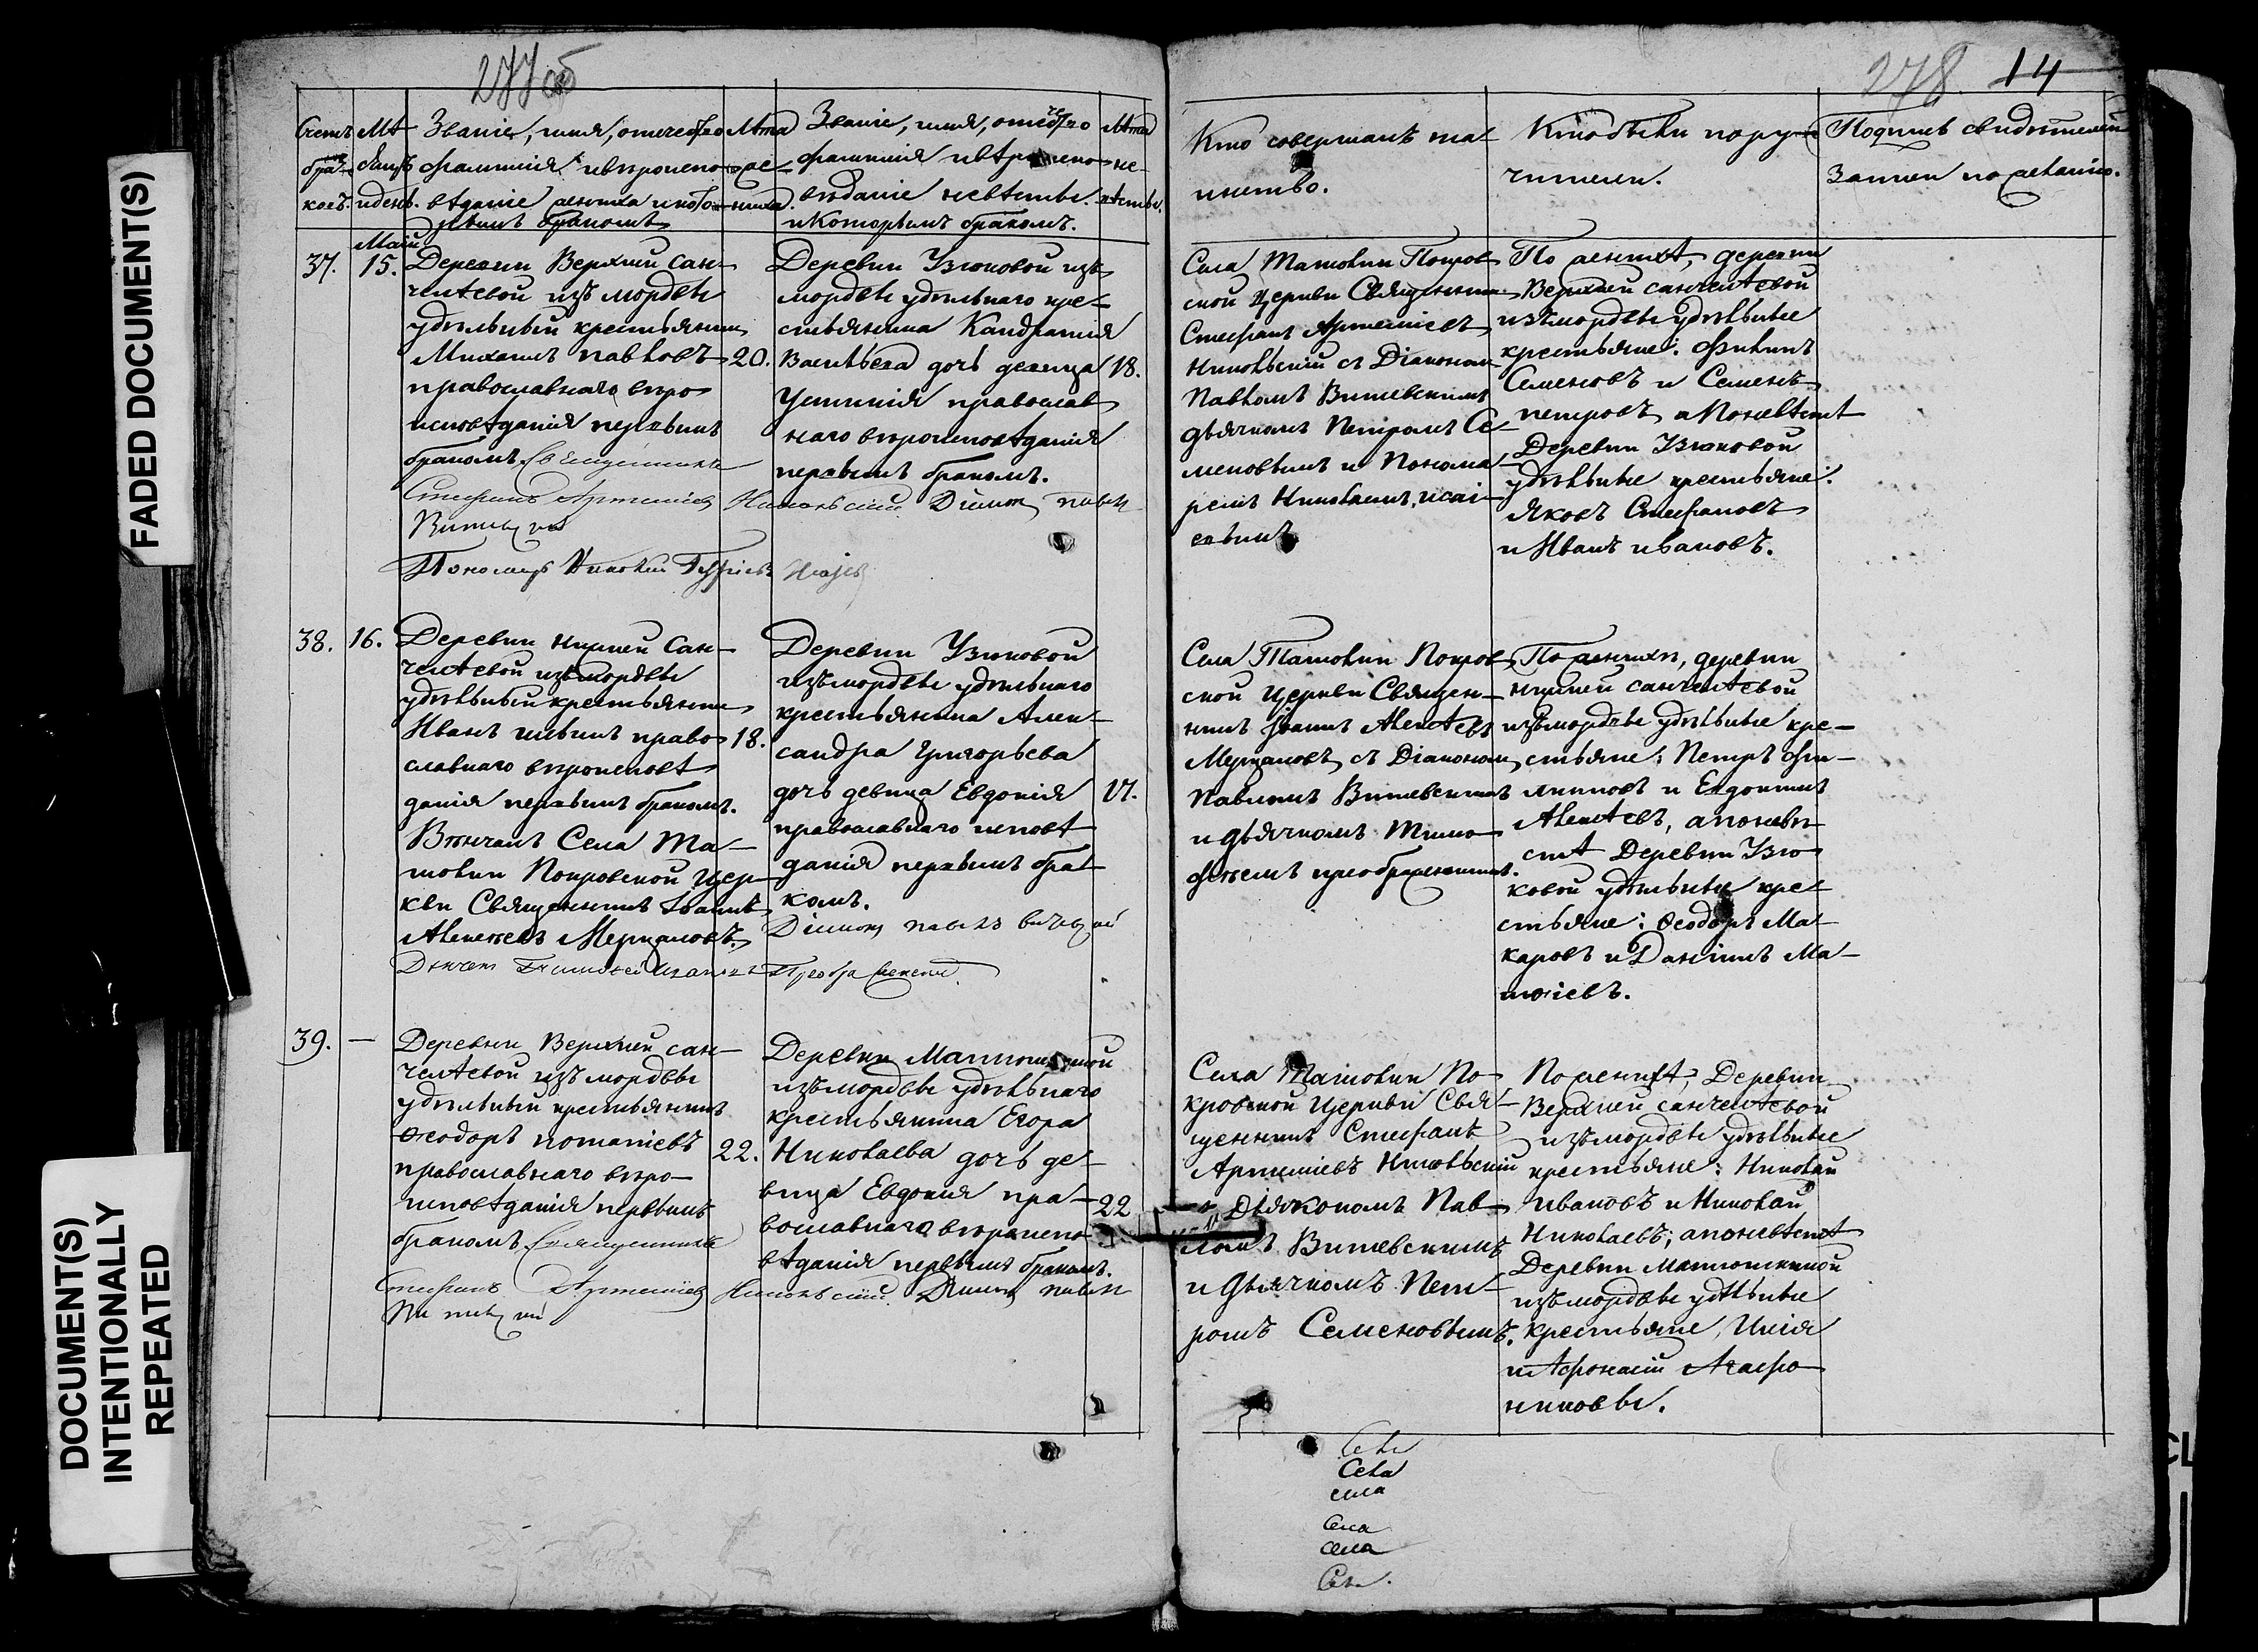 FADED DOCUMENT(S)
DOCUMENT(S)
INTENTIONALLY
REPEATED
277 об
Счетъ бра-
ковъ.
Мѣ-
сяцъ
и день.
Званіе, имя, отечество
фамилія и вѣроиспо-
вѣданіе жениха и кото-
рымъ бракомъ
Лѣта
же-
ниха.
Званіе, имя, отечество
фамилія и вѣроиспо-
вѣданіе невѣсты.
и которымъ бракомъ.
Лѣта
не-
вѣсты.
37.
Маій
15.
Деревни Верхней Сан-
челѣевой изъ мордвы
удѣльный крестьянинъ
Михаилъ павловъ
православнаго вѣро
исповѣданія первымъ
бракомъ Священникъ
20.
Деревни Узюковой изъ
мордвы удѣльнаго кре-
стьянина Кандратія
Васильева дочь девица
Устинія православ
наго вѣроисповѣданія
первымъ бракомъ.
18.
Стефанъ Артеміевъ Никольскій Діаконъ павел
Пономарь Николай
38.
16.
Деревни нижней Сан-
челѣевой изъ мордвы
удѣльный крестьянинъ
Иванъ право
славнаго вѣроисповѣ
данія первымъ бракомъ.
Вѣнчалъ Села Та-
шолки Покровской Цер-
кви Священникъ Іоаннъ
Алексеевъ Мерцаловъ.
18.
Деревни Узюковой
изъ мордвы удѣльнаго
крестьянина Алек-
сандра Григорьева
дочь девица Евдокія
православнаго исповѣ
данія первымъ бра-
комъ.
17.
Діаконъ павелъ
Дьячекъ Тимофей Преображенскій.
39.
—
Деревни Верхней сан-
челѣевой изъ мордвы
удѣльный крестьянинъ
Ѳеодоръ потапіевъ
православнаго вѣро-
исповѣданія первымъ
бракомъ Священникъ
22.
Деревни Матюшкиной
изъ мордвы удѣльнаго
крестьянина Егора
Николаева дочь де-
вица Евдокия пра-
вославнаго вѣроиспо-
вѣданія первымъ бракомъ.
22
Стефанъ Артеміевъ Никольскій Діаконъ павел
278. 14
Кто совершалъ та-
инство.
Кто были пору-
чители.
Подпись свидѣтелей
записи по желанію.
Села Ташолки Покров
ской Церкви Священникъ
Стефанъ Артеміевъ
Никольскій съ Діакономъ
Павломъ Витевскимъ
дьячкомъ Петромъ Се-
меновымъ и Понома-
ремъ Николаемъ
По женихѣ, деревни
Верхней санчелѣевой
изъ мордвы удѣльные
крестьяне: Филипъ
Семеновъ и Семенъ
петровъ, а По невѣстѣ
Деревни Узюковой
удѣльные крестьяне:
Яковъ Стефановъ
и Иванъ ивановъ.
Села Ташолки Покров
ской Церкви Священ-
никъ Іоаннъ Алексѣевъ
Мерцаловъ, съ Діакономъ
Павломъ Витевскимъ
и дьячкомъ Тимо
феемъ преображенскимъ.
По женихѣ, деревни
нижней санчелѣевой
изъ мордвы удѣльные кре-
стьяне: Петръ фи-
липповъ и Евдокимъ
Алексѣевъ, а по невѣ
стѣ Деревни Узю
ковой удѣльные кре-
стьяне: Ѳеодоръ Ма-
каровъ и Даніилъ Ма-
Села Ташолки По-
кровской Церкви Свя-
щенникъ Стефанъ
Артеміевъ Никольскій
съ Діякономъ Пав-
ломъ Витевскимъ
и дьячкомъ Пет-
ромъ Семеновымъ.
По женихѣ, Деревни
Верхней санчелѣевой
изъ мордвы удѣльные
крестьяне: Николай
Ивановъ и Николай
Николаевъ; а по невѣстѣ
Деревни Матюшкиной
изъ мордвы удѣльные
крестьяне, Илія
и Афонасій Агафо
никовы.
Села
Села
села
Села
села
Села.